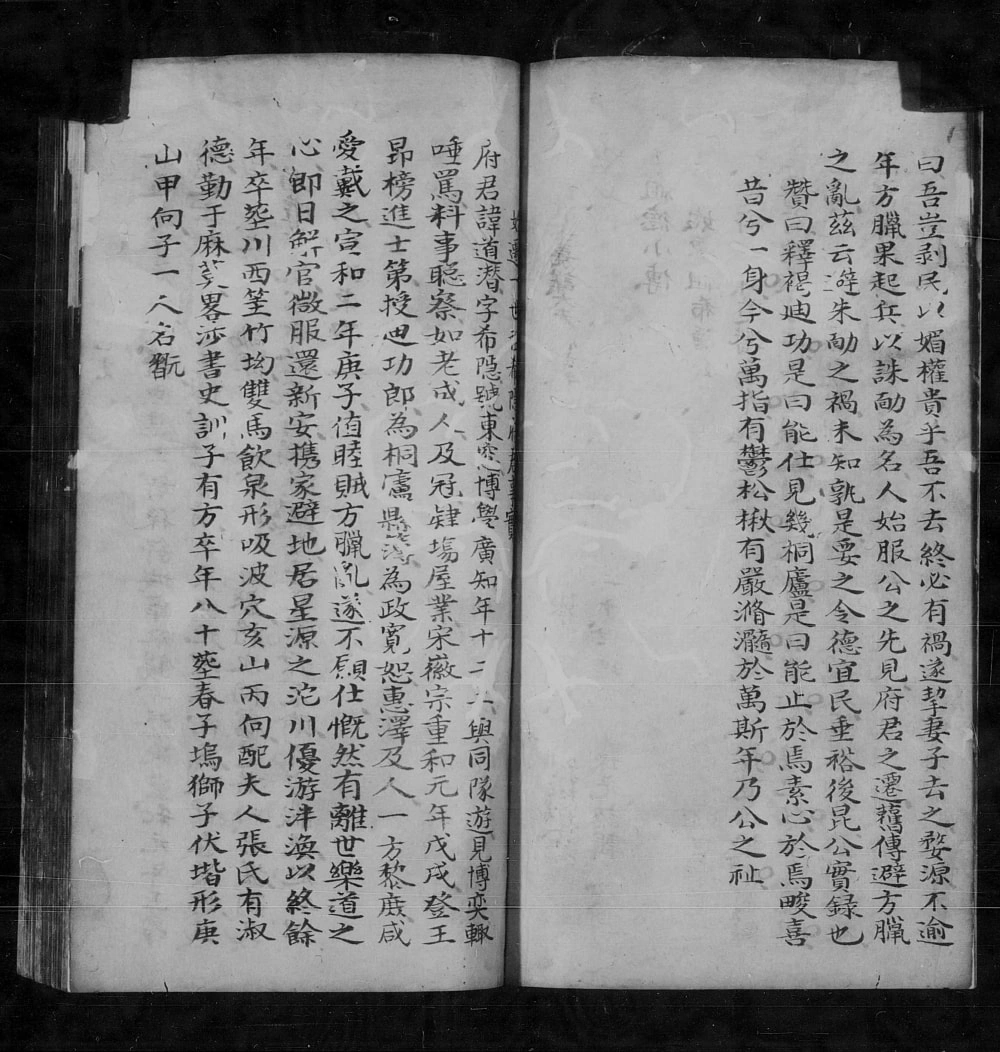 曰吾豈剥民以媚權貴乎吾不去終必有禍遂挈妻子去之婺源不逾
年方臘果起兵以誅勔為名人始服公之先見府君之遷舊傳避方臘
之亂茲云避朱勔之禍未知孰是要之令德宜民垂裕後昆公實録也
贊曰釋褐迪功是曰能仕見幾桐廬是曰能止於焉素心於焉畯喜
昔兮一身今兮萬指有鬱松楸有嚴滫瀡於萬斯年乃公之祉
始遷一世
府君諱道潜字希隠號東窓博學廣知年十二三與同隊遊見博奕輙
唾罵料事聡察如老成人及冠肄塲屋業宋徽宗重和元年戊戌登王
昂榜進士第授迪功郎為桐廬縣簿為政寛恕惠澤及人一方黎庶咸
愛戴之宣和二年庚子值睦賊方臘亂遂不願仕慨然有離世樂道之
心即日解官微服還新安携家避地居星源之沱川優游泮渙以終餘
年卒塟川西筀竹坳雙馬飲泉形吸波穴亥山丙向配夫人張氏有淑
德勤于麻葈畧涉書史訓子有方卒年八十塟春子塢獅子伏堦形庚
山甲向子一人名翫